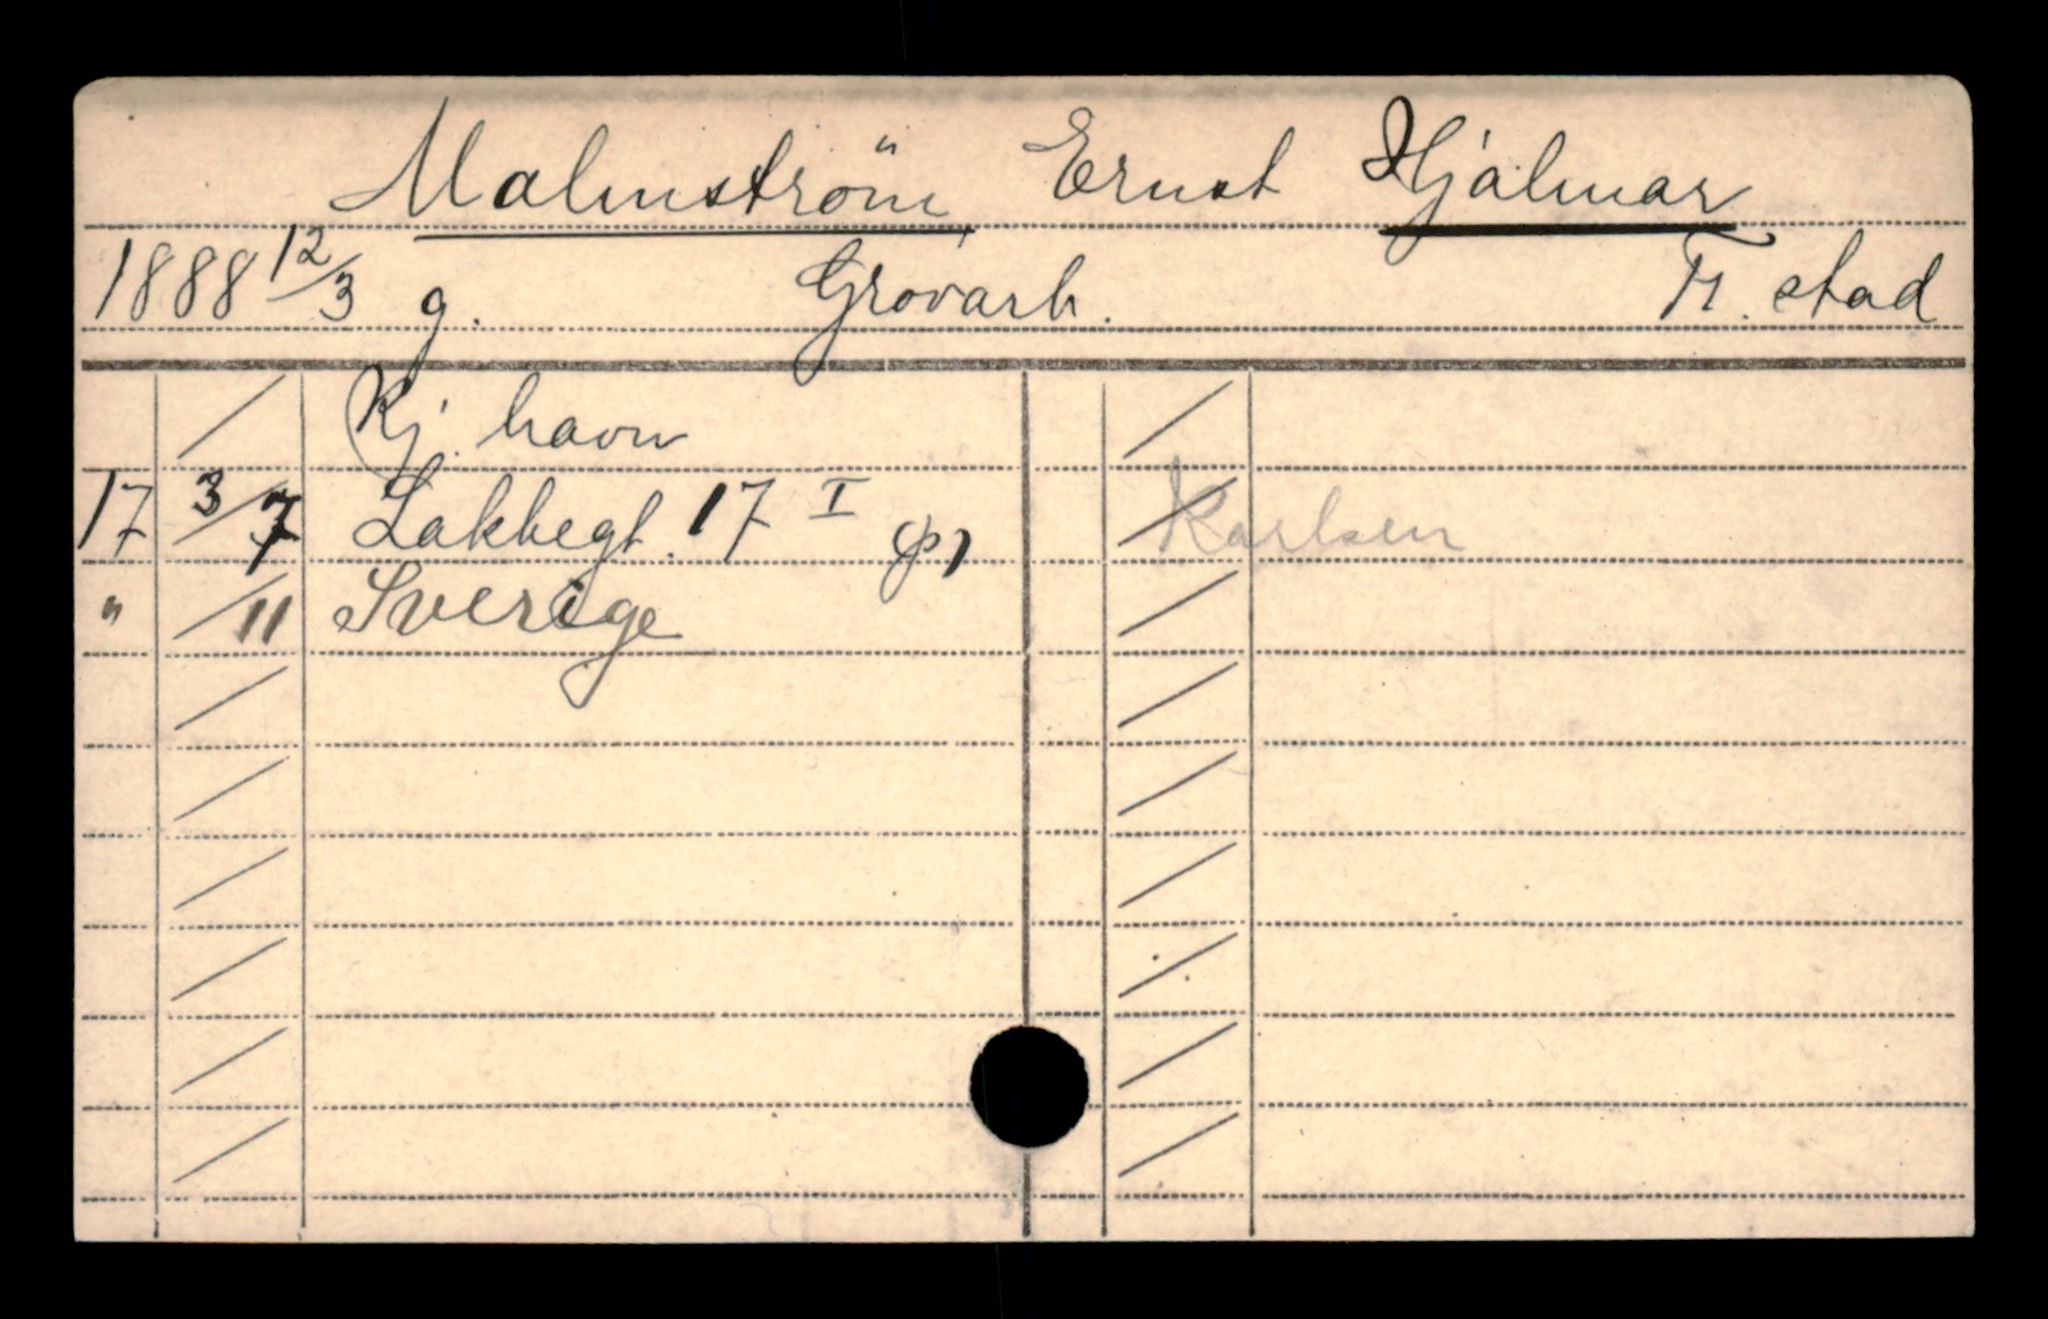 Malmström, Ernst Hjalmar
1888 12/3 g. Grovarb. Fr. stad
Kj. havn
17 3/7 Lakkegt. 17 I Karlsen
" /11 Sverige